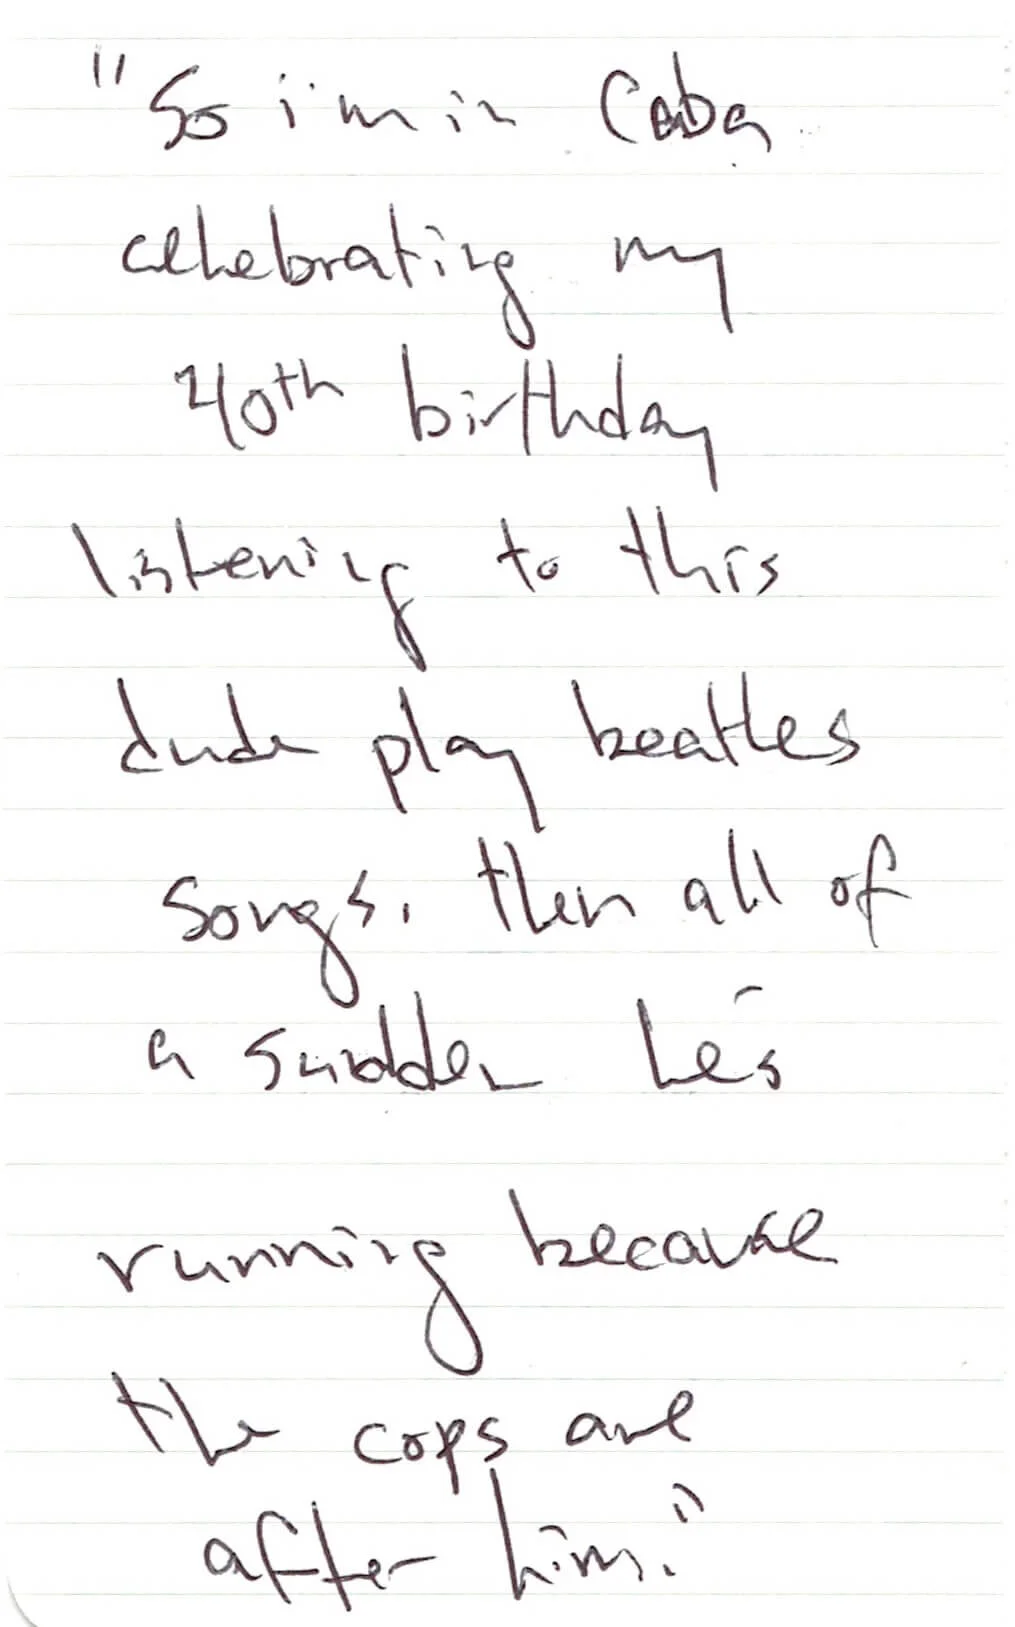 "So i'm in Cuba
celebrating my
40th birthday
listening to this
dude play beatles
songs. then all of
a sudden he's
running because
the cops are
after him."